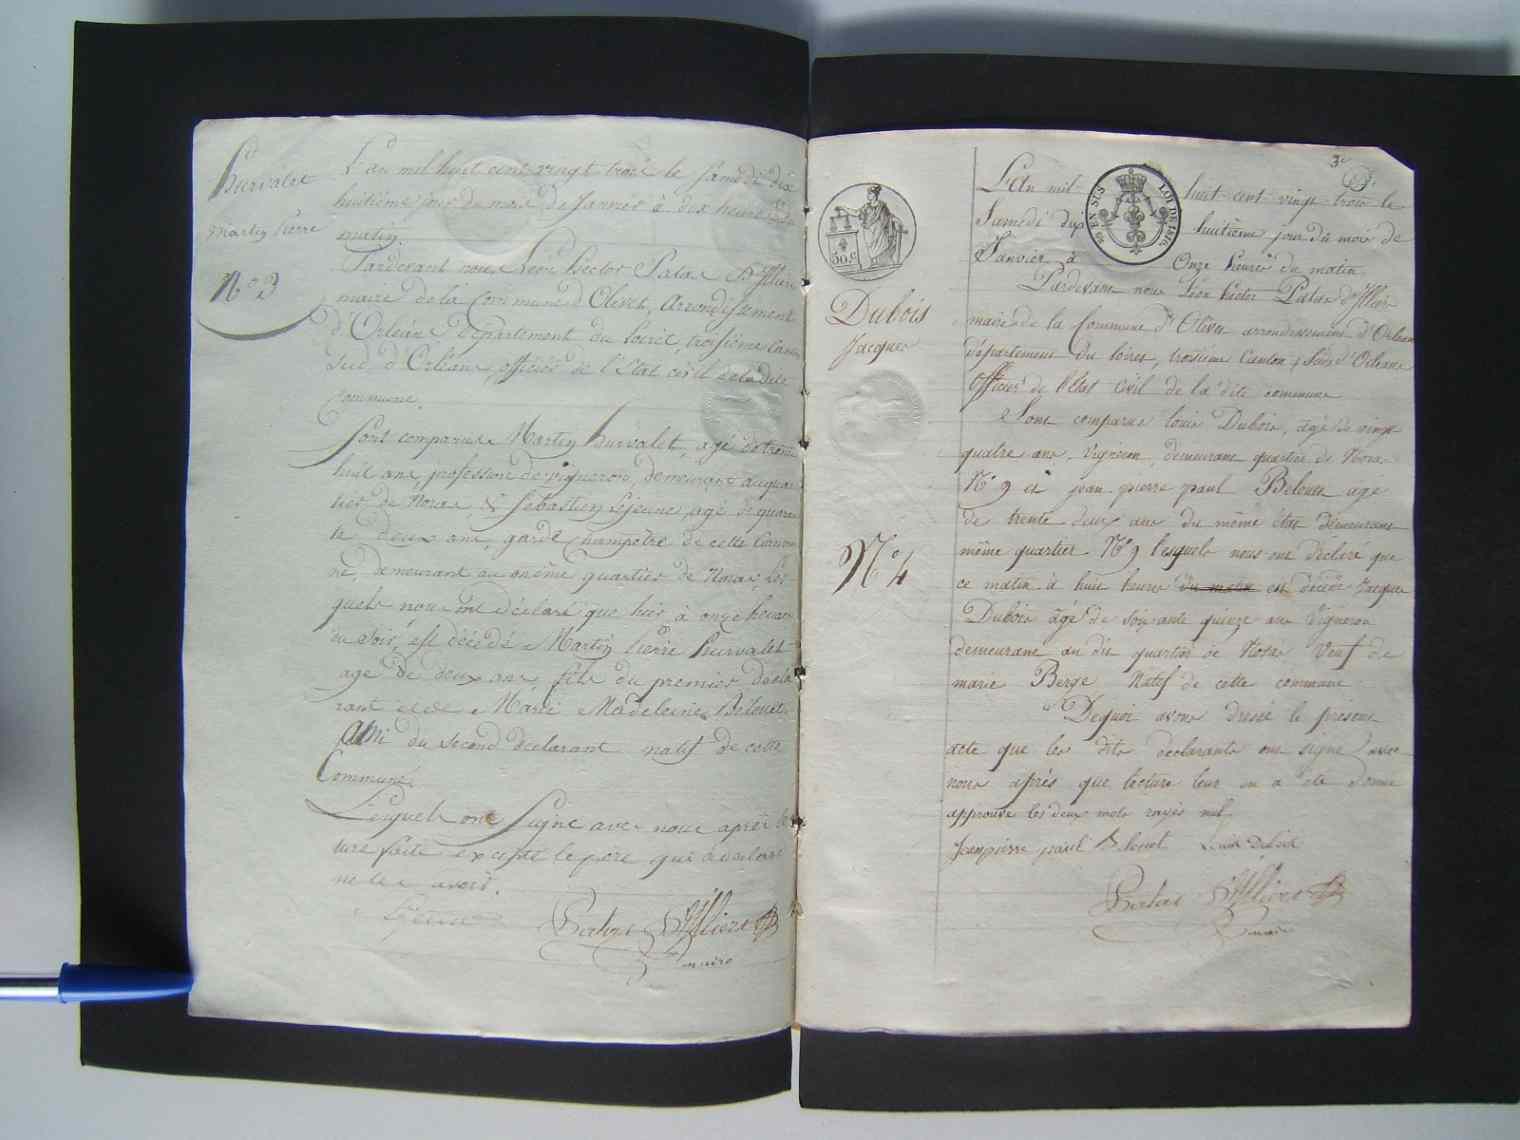 hurvalet
Martin Pierre
N° 3
L'an mil huit cent vingt trois le Samedi dix
huitième jour du mois de Janvier à dix heures du
matin.
Pardevant nous Léon hector Patas d'Illiers
maire de la Commune d'Olivet, Arrondissement
d'Orléans Département du loiret, troisième Canton
Sud d'Orléans, officier de l'Etat civil de la dite
Commune.
Sont comparus Martin hurvalet, agé de trente
huit ans, profession de vigneron, demeurant au quar
tier de & Sébastien Lejeune, agé de quaran
te deux ans, garde champetre de cette Commu
ne, demeurant au même quartier de les
quels nous ont déclaré que hier à onze heures
du soir, est décédé Martin Pierre hurvalet
agé de deux ans, fils du premier décla
rant et de Marie Madeleine Belouet
ami du second déclarant natif de cette
Commune.
Lesquels ont Signé avec nous après lec
ture faite excepté le père qui a déclaré
ne le savoir.
Patas d'Illiers
maire
3e
50 c
EN SUS
LOI DE 1816
Dubois
Jacques
N° 4
L'An mil huit cent vingt trois le
Samedi dix huitième jour du mois de
Janvier à Onze heures du matin
Pardevant nous Léon hector Patas d'Illiers
maire de la Commune d'Olivet arrondissement d'Orléans
département du loiret, troisième Canton Sud d'Orléans
Officier de l'état Civil de la dite commune
Sont comparus louis Dubois, agé de vingt
quatre ans, vigneron, demeurant quartier de
N° 9 et jean pierre paul Belouet agé
de trente deux ans du même état demeurant
même quartier N° 9 lesquels nous ont déclaré que
ce matin à huit heures du matin est décédé Jacques
Dubois âgé de soixante quinze ans Vigneron
demeurant au dit quartier de Veuf de
marie Berge Natif de cette commune
Dequoi avons dressé le présent
acte que les dits déclarants ont signé avec
nous après que lecture leur en a été donné
approuvé les deux mots rayés nul
Jean pierre paul Belouet Louis Dubois
Patas d'Illiers
maire